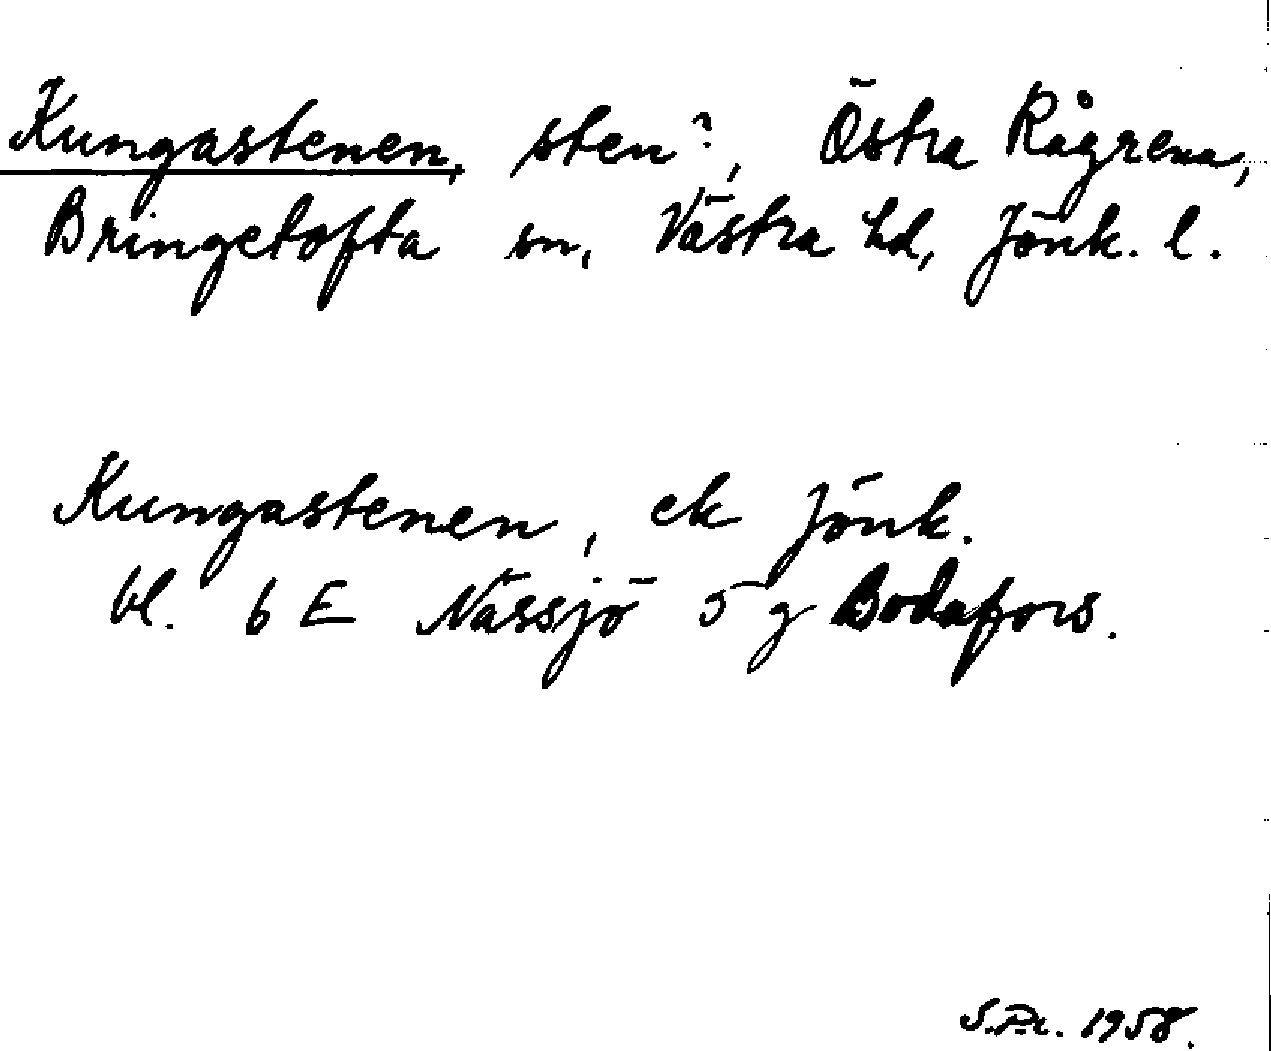 Kungastenen, sten?, Östra Rågrena,
Bringetofta sn, Västra hd, Jönk. l.
Kungastenen, ek Jönk.
bl. 6 E Nässjö 5 g Bodafors.
1958.